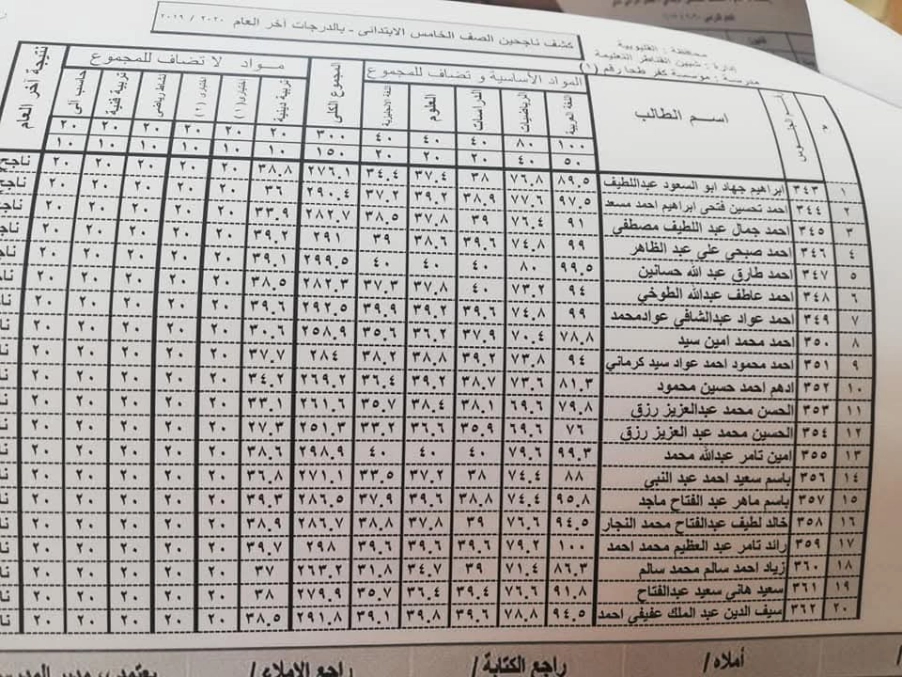 محافظة : القليوبية
إدارة : شبين القناطر التعليمية
مدرسة : موسسة كفر طحا رقم (١)
كشف ناجحين الصف الخامس الابتدائى - بالدرجات آخر العام ٢٠٢٠ / ٢٠١٩
م رقم الجلوس اسم الطالب المواد الأساسية و تضاف للمجموع المجموع الكلى مواد لا تضاف للمجموع نتيجة آخر العام
اللغة العربية الرياضيات الدراسات العلوم اللغة الانجليزية تربية دينية اختيارى (١) اختيارى (٢) نشاط رياضى تربية فنية حاسب آلى
١٠٠ ٨٠ ٤٠ ٤٠ ٤٠ ٣٠٠ ٢٠ ٢٠ ٢٠ ٢٠ ٢٠ ٢٠
٥٠ ٤٠ ٢٠ ٢٠ ٢٠ ١٥٠ ١٠ ١٠ ١٠ ١٠ ١٠ ١٠
١ ٣٤٣ ابراهيم جهاد ابو السعود عبداللطيف ٨٩.٥ ٧٦.٨ ٣٨ ٣٧.٤ ٣٤.٤ ٢٧٦.١ ٣٨.٨ ٢٠ ٢٠ ٢٠ ٢٠ ٢٠ ناجح
٢ ٣٤٤ احمد تحسين فتحى ابراهيم احمد مسعد ٩٧.٥ ٧٧.٦ ٣٨.٩ ٣٩.٢ ٣٧.٢ ٢٩٠.٤ ٣٦ ٢٠ ٢٠ ٢٠ ٢٠ ٢٠
٣ ٣٤٥ احمد جمال عبد اللطيف مصطفي ٩١ ٧٦.٤ ٣٩ ٣٧.٨ ٣٨.٥ ٢٨٢.٧ ٣٣.٩ ٢٠ ٢٠ ٢٠ ٢٠ ٢٠
٤ ٣٤٦ احمد صبحي علي عبد الظاهر ٩٩ ٧٤.٨ ٣٩.٦ ٣٨.٦ ٣٩ ٢٩١ ٣٩.٢ ٢٠ ٢٠ ٢٠ ٢٠ ٢٠
٥ ٣٤٧ احمد طارق عبد الله حسانين ٩٩.٥ ٨٠ ٤٠ ٤٠ ٤٠ ٢٩٩.٥ ٣٩.١ ٢٠ ٢٠ ٢٠ ٢٠ ٢٠
٦ ٣٤٨ احمد عاطف عبدالله الطوخي ٩٤ ٧٣.٢ ٤٠ ٣٧.٨ ٣٧.٣ ٢٨٢.٣ ٣٨.٥ ٢٠ ٢٠ ٢٠ ٢٠ ٢٠
٧ ٣٤٩ احمد عواد عبدالشافي عوادمحمد ٩٩ ٧٤.٨ ٣٩.٦ ٣٩.٢ ٣٩.٩ ٢٩٢.٥ ٣٩.٦ ٢٠ ٢٠ ٢٠ ٢٠ ٢٠
٨ ٣٥٠ احمد محمد امين سيد ٧٨.٨ ٧٠.٤ ٣٧.٩ ٣٦.٢ ٣٥.٦ ٢٥٨.٩ ٣٠.٦ ٢٠ ٢٠ ٢٠ ٢٠ ٢٠
٩ ٣٥١ احمد محمود احمد عواد سيد كرماني ٩٤ ٧٣.٨ ٣٩.٢ ٣٨.٨ ٣٨.٢ ٢٨٤ ٣٧.٧ ٢٠ ٢٠ ٢٠ ٢٠ ٢٠
١٠ ٣٥٢ ادهم احمد حسين محمود ٨١.٣ ٧٣.٦ ٣٨.٧ ٣٩.٢ ٣٦.٤ ٢٦٩.٢ ٣٤.٢ ٢٠ ٢٠ ٢٠ ٢٠ ٢٠
١١ ٣٥٣ الحسن محمد عبدالعزيز رزق ٧٩.٨ ٦٩.٦ ٣٨.١ ٣٨.٤ ٣٥.٧ ٢٦١.٦ ٣٣.١ ٢٠ ٢٠ ٢٠ ٢٠ ٢٠
١٢ ٣٥٤ الحسين محمد عبد العزيز رزق ٧٦ ٦٩.٦ ٣٥.٩ ٣٦.٦ ٣٣.٢ ٢٥١.٣ ٢٧.٣ ٢٠ ٢٠ ٢٠ ٢٠ ٢٠
١٣ ٣٥٥ امين تامر عبدالله محمد ٩٩.٣ ٧٩.٦ ٤٠ ٤٠ ٤٠ ٢٩٨.٩ ٣٨.٦ ٢٠ ٢٠ ٢٠ ٢٠ ٢٠
١٤ ٣٥٦ باسم سعيد احمد عبد النبي ٨٨ ٧٤.٤ ٣٨ ٣٧.٢ ٣٣.٥ ٢٧١.١ ٣٦.٨ ٢٠ ٢٠ ٢٠ ٢٠ ٢٠
١٥ ٣٥٧ باسم ماهر عبد الفتاح ماجد ٩٥.٨ ٧٤.٤ ٣٨.٨ ٣٩.٦ ٣٧.٩ ٢٨٦.٥ ٣٩.٣ ٢٠ ٢٠ ٢٠ ٢٠ ٢٠
١٦ ٣٥٨ خالد لطيف عبدالفتاح محمد النجار ٩٤.٥ ٧٦.٦ ٣٩ ٣٧.٨ ٣٨.٨ ٢٨٦.٧ ٣٨.٩ ٢٠ ٢٠ ٢٠ ٢٠ ٢٠
١٧ ٣٥٩ رائد تامر عبد العظيم محمد احمد ١٠٠ ٧٩.٢ ٣٩.٦ ٣٩.٦ ٣٩.٦ ٢٩٨ ٣٩.٧ ٢٠ ٢٠ ٢٠ ٢٠ ٢٠
١٨ ٣٦٠ زياد احمد سالم محمد سالم ٨٦.٣ ٧١.٤ ٣٩ ٣٤.٧ ٣١.٨ ٢٦٣.٢ ٣٧ ٢٠ ٢٠ ٢٠ ٢٠ ٢٠
١٩ ٣٦١ سعيد هاني سعيد عبدالفتاح ٩١.٨ ٧٦.٦ ٣٩.٤ ٣٦.٤ ٣٥.٧ ٢٧٩.٩ ٣٨ ٢٠ ٢٠ ٢٠ ٢٠ ٢٠
٢٠ ٣٦٢ سيف الدين عبد الملك عفيفي احمد ٩٤.٥ ٧٨.٨ ٣٩.٦ ٣٩.٨ ٣٩.١ ٢٩١.٨ ٣٨.٥ ٢٠ ٢٠ ٢٠ ٢٠ ٢٠
أملاه / راجع الكتابة / راجع الاملاء / يعتمد ،، مدير المدرسة